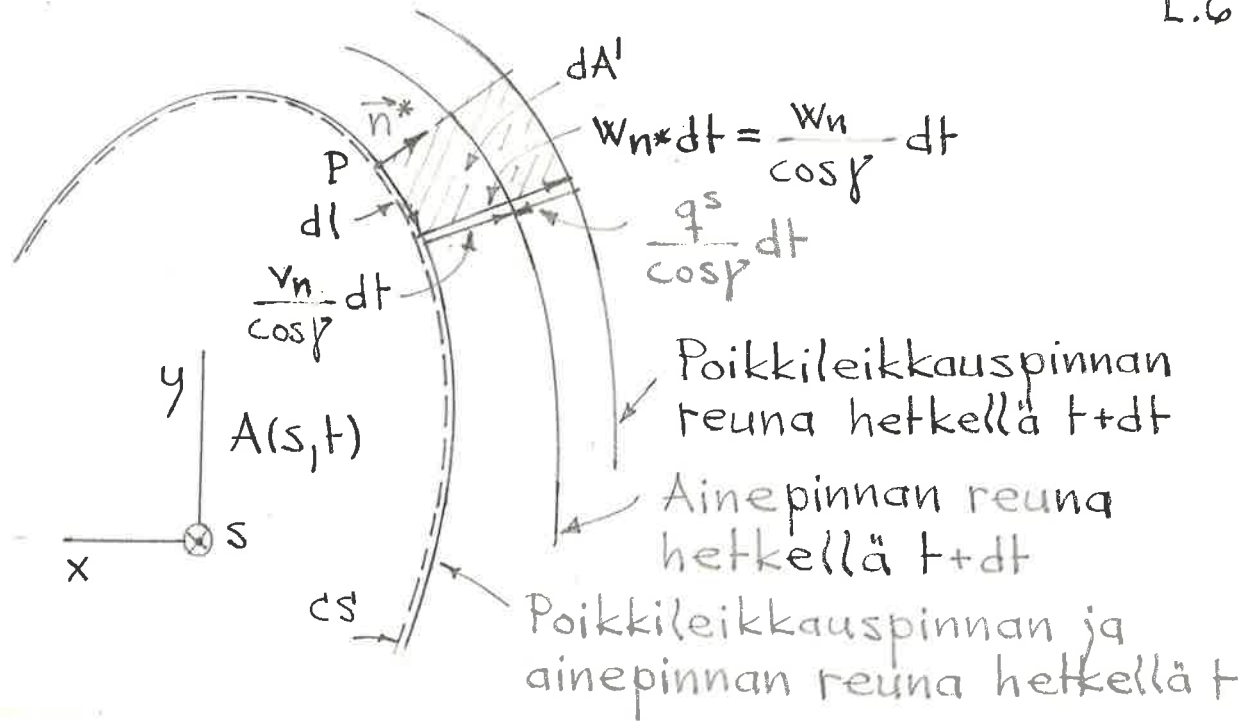 L.6
dA'
n⃗*
Wn* dt = Wn/cosγ dt
P
dl
qˢ/cosγ dt
vn/cosγ dt
y
A(s,t)
Poikkileikkauspinnan
reuna hetkellä t+dt
Ainepinnan reuna
hetkellä t+dt
s
x
cs
Poikkileikkauspinnan ja
ainepinnan reuna hetkellä t